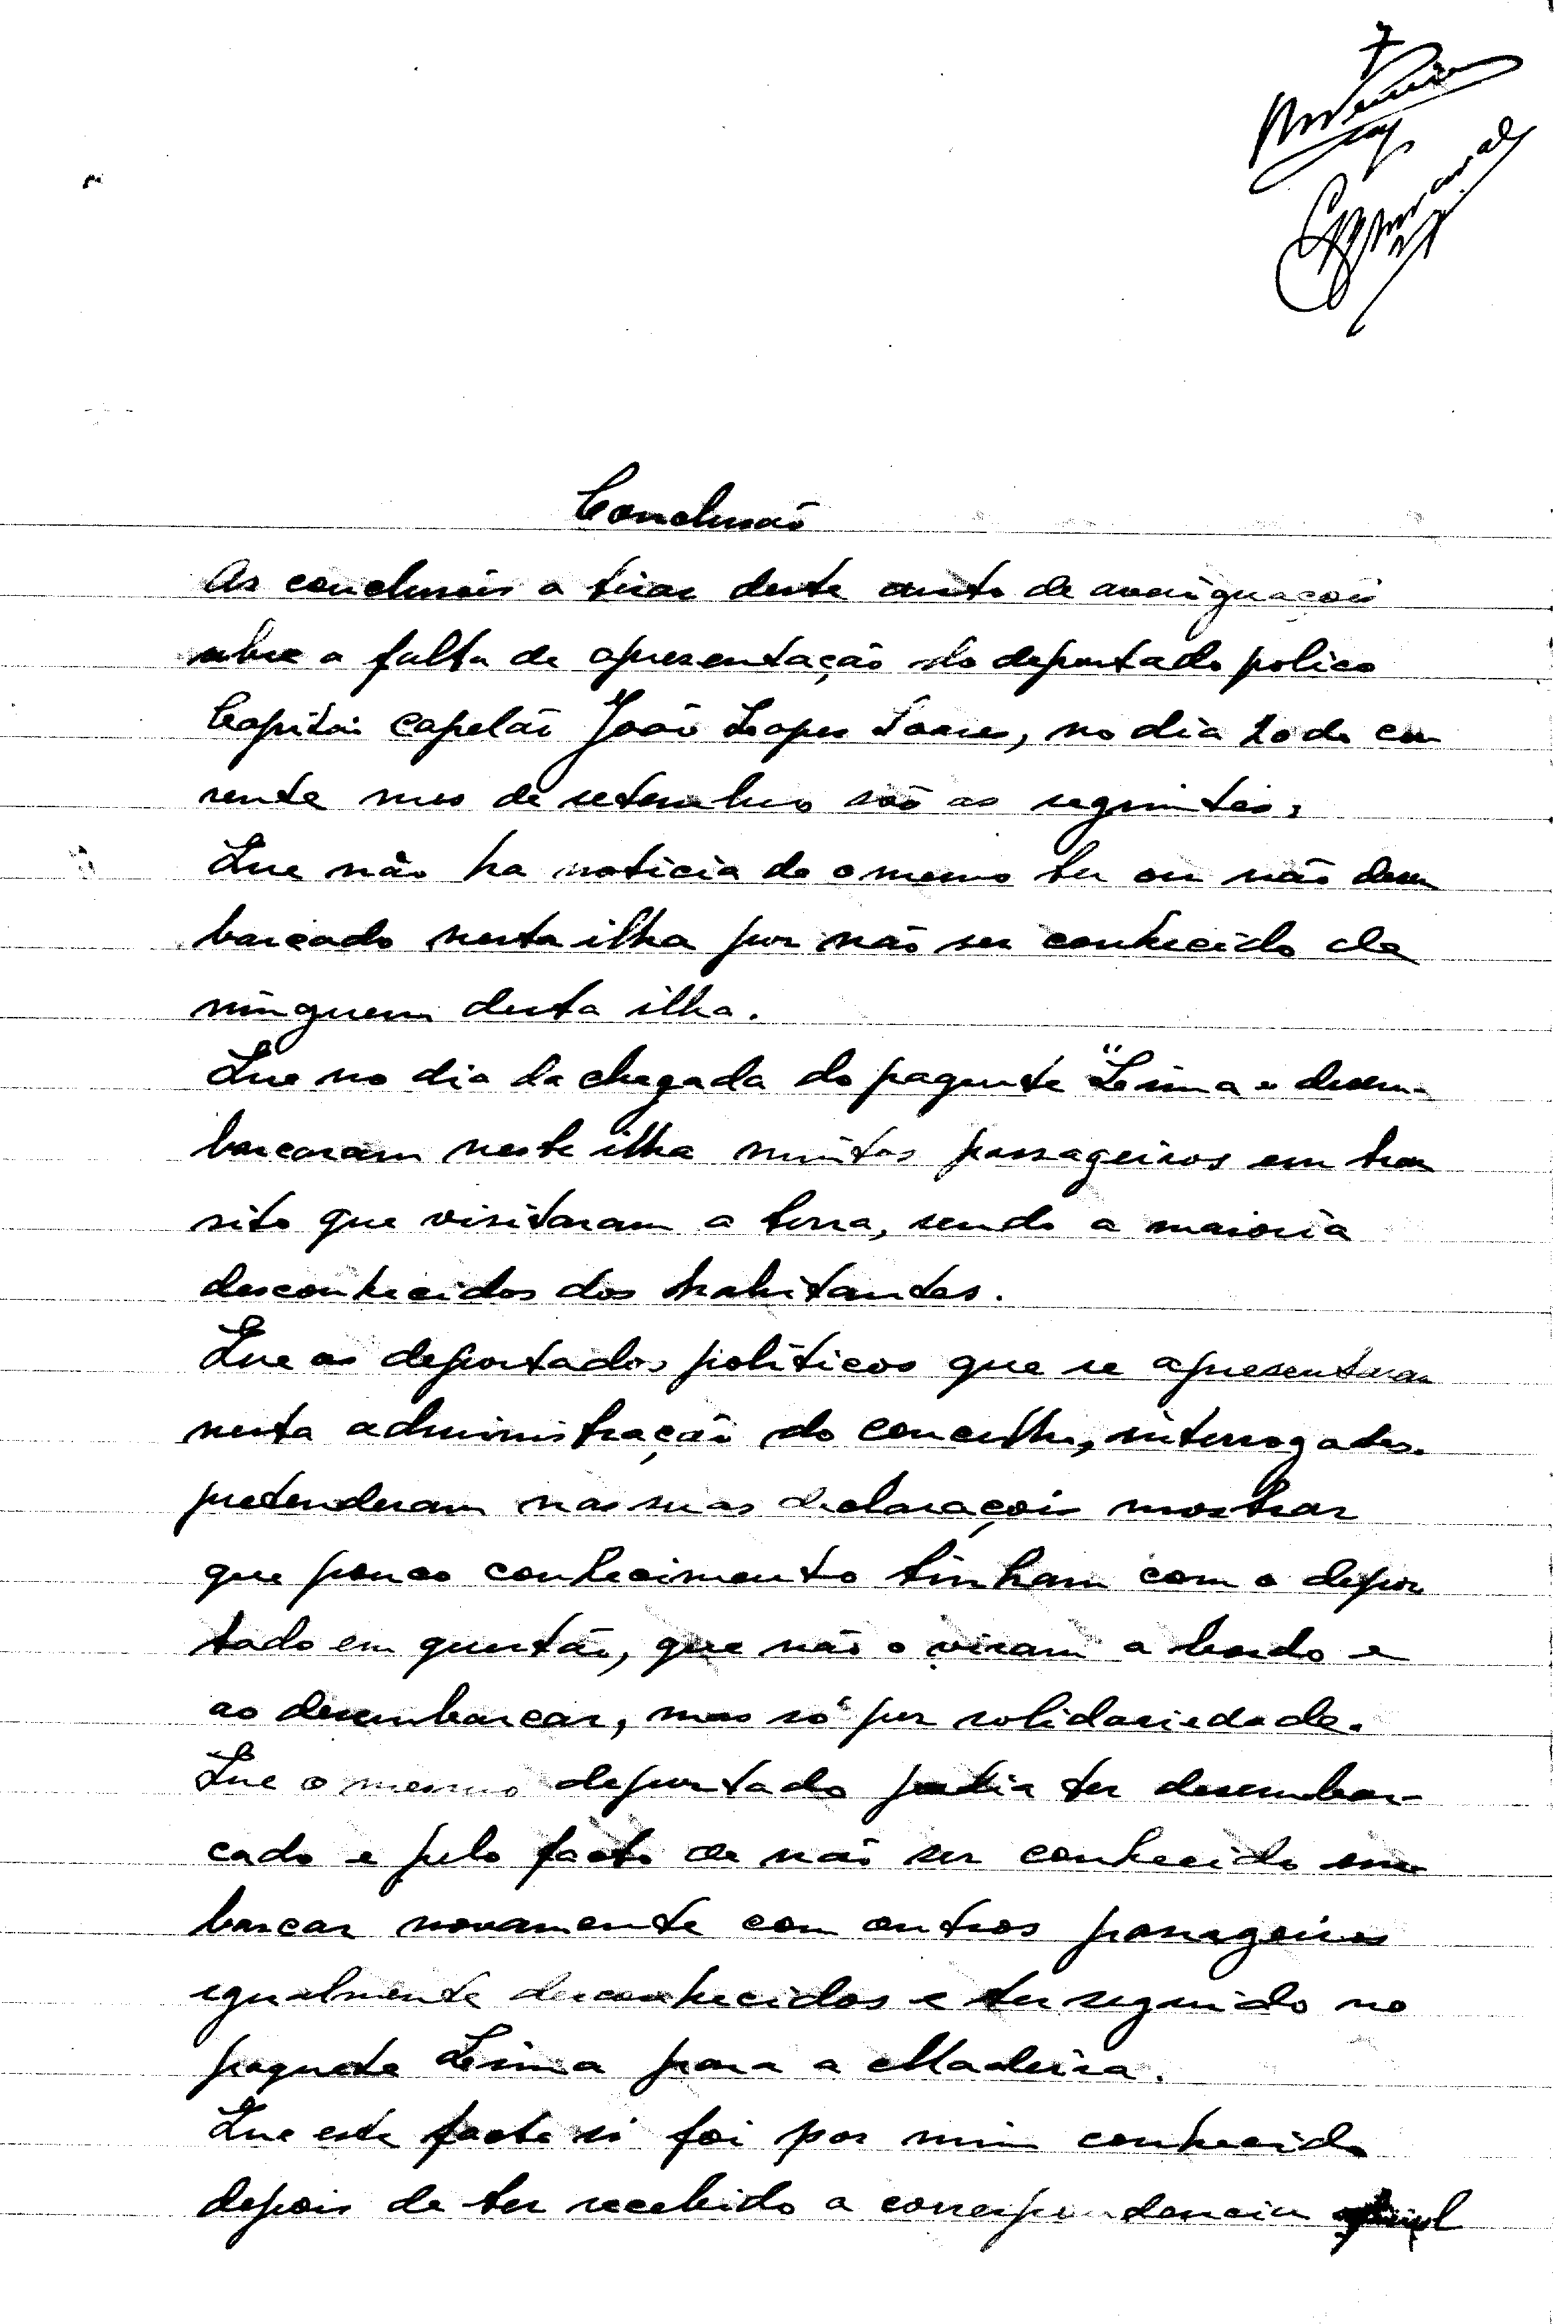 7
Conclusão
As conclusõis a tirar deste auto de averiguaçõis
sobre a falta de apresentação do deportado polico
Capitão capelão João Lopes Soares, no dia 20 do cor
rente mes de setembro são as seguintes,
Que não ha noticia de o mesmo ter ou não desem
barcado nesta ilha por não ser conhecido de
ninguem desta ilha.
Que no dia da chegada do paquete "Lima" desem-
barcaram neste ilha muitos passageiros em tran
sito que visitaram a terra, sendo a maioria
desconhecidos dos habitantes.
Que os deportados politicos que se apresentaram
nesta administração do concelho, interrogados.
pretenderam nas suas declaraçois mostrar
que pouco conhecimento tinham com o depor
tado em questão, que não o viram a bordo e
ao desembarcar, mas só por solidariedade.
Que o mesmo deportado podia ter desembar-
cado e pelo facto de não ser conhecido em
barcar novamente com outros passageiros
egualmente desconhecidos e ter seguido no
paquete Lima para a Madeira.
Que este facto só foi por mim conhecido
depois de ter recebido a correspondencia oficial